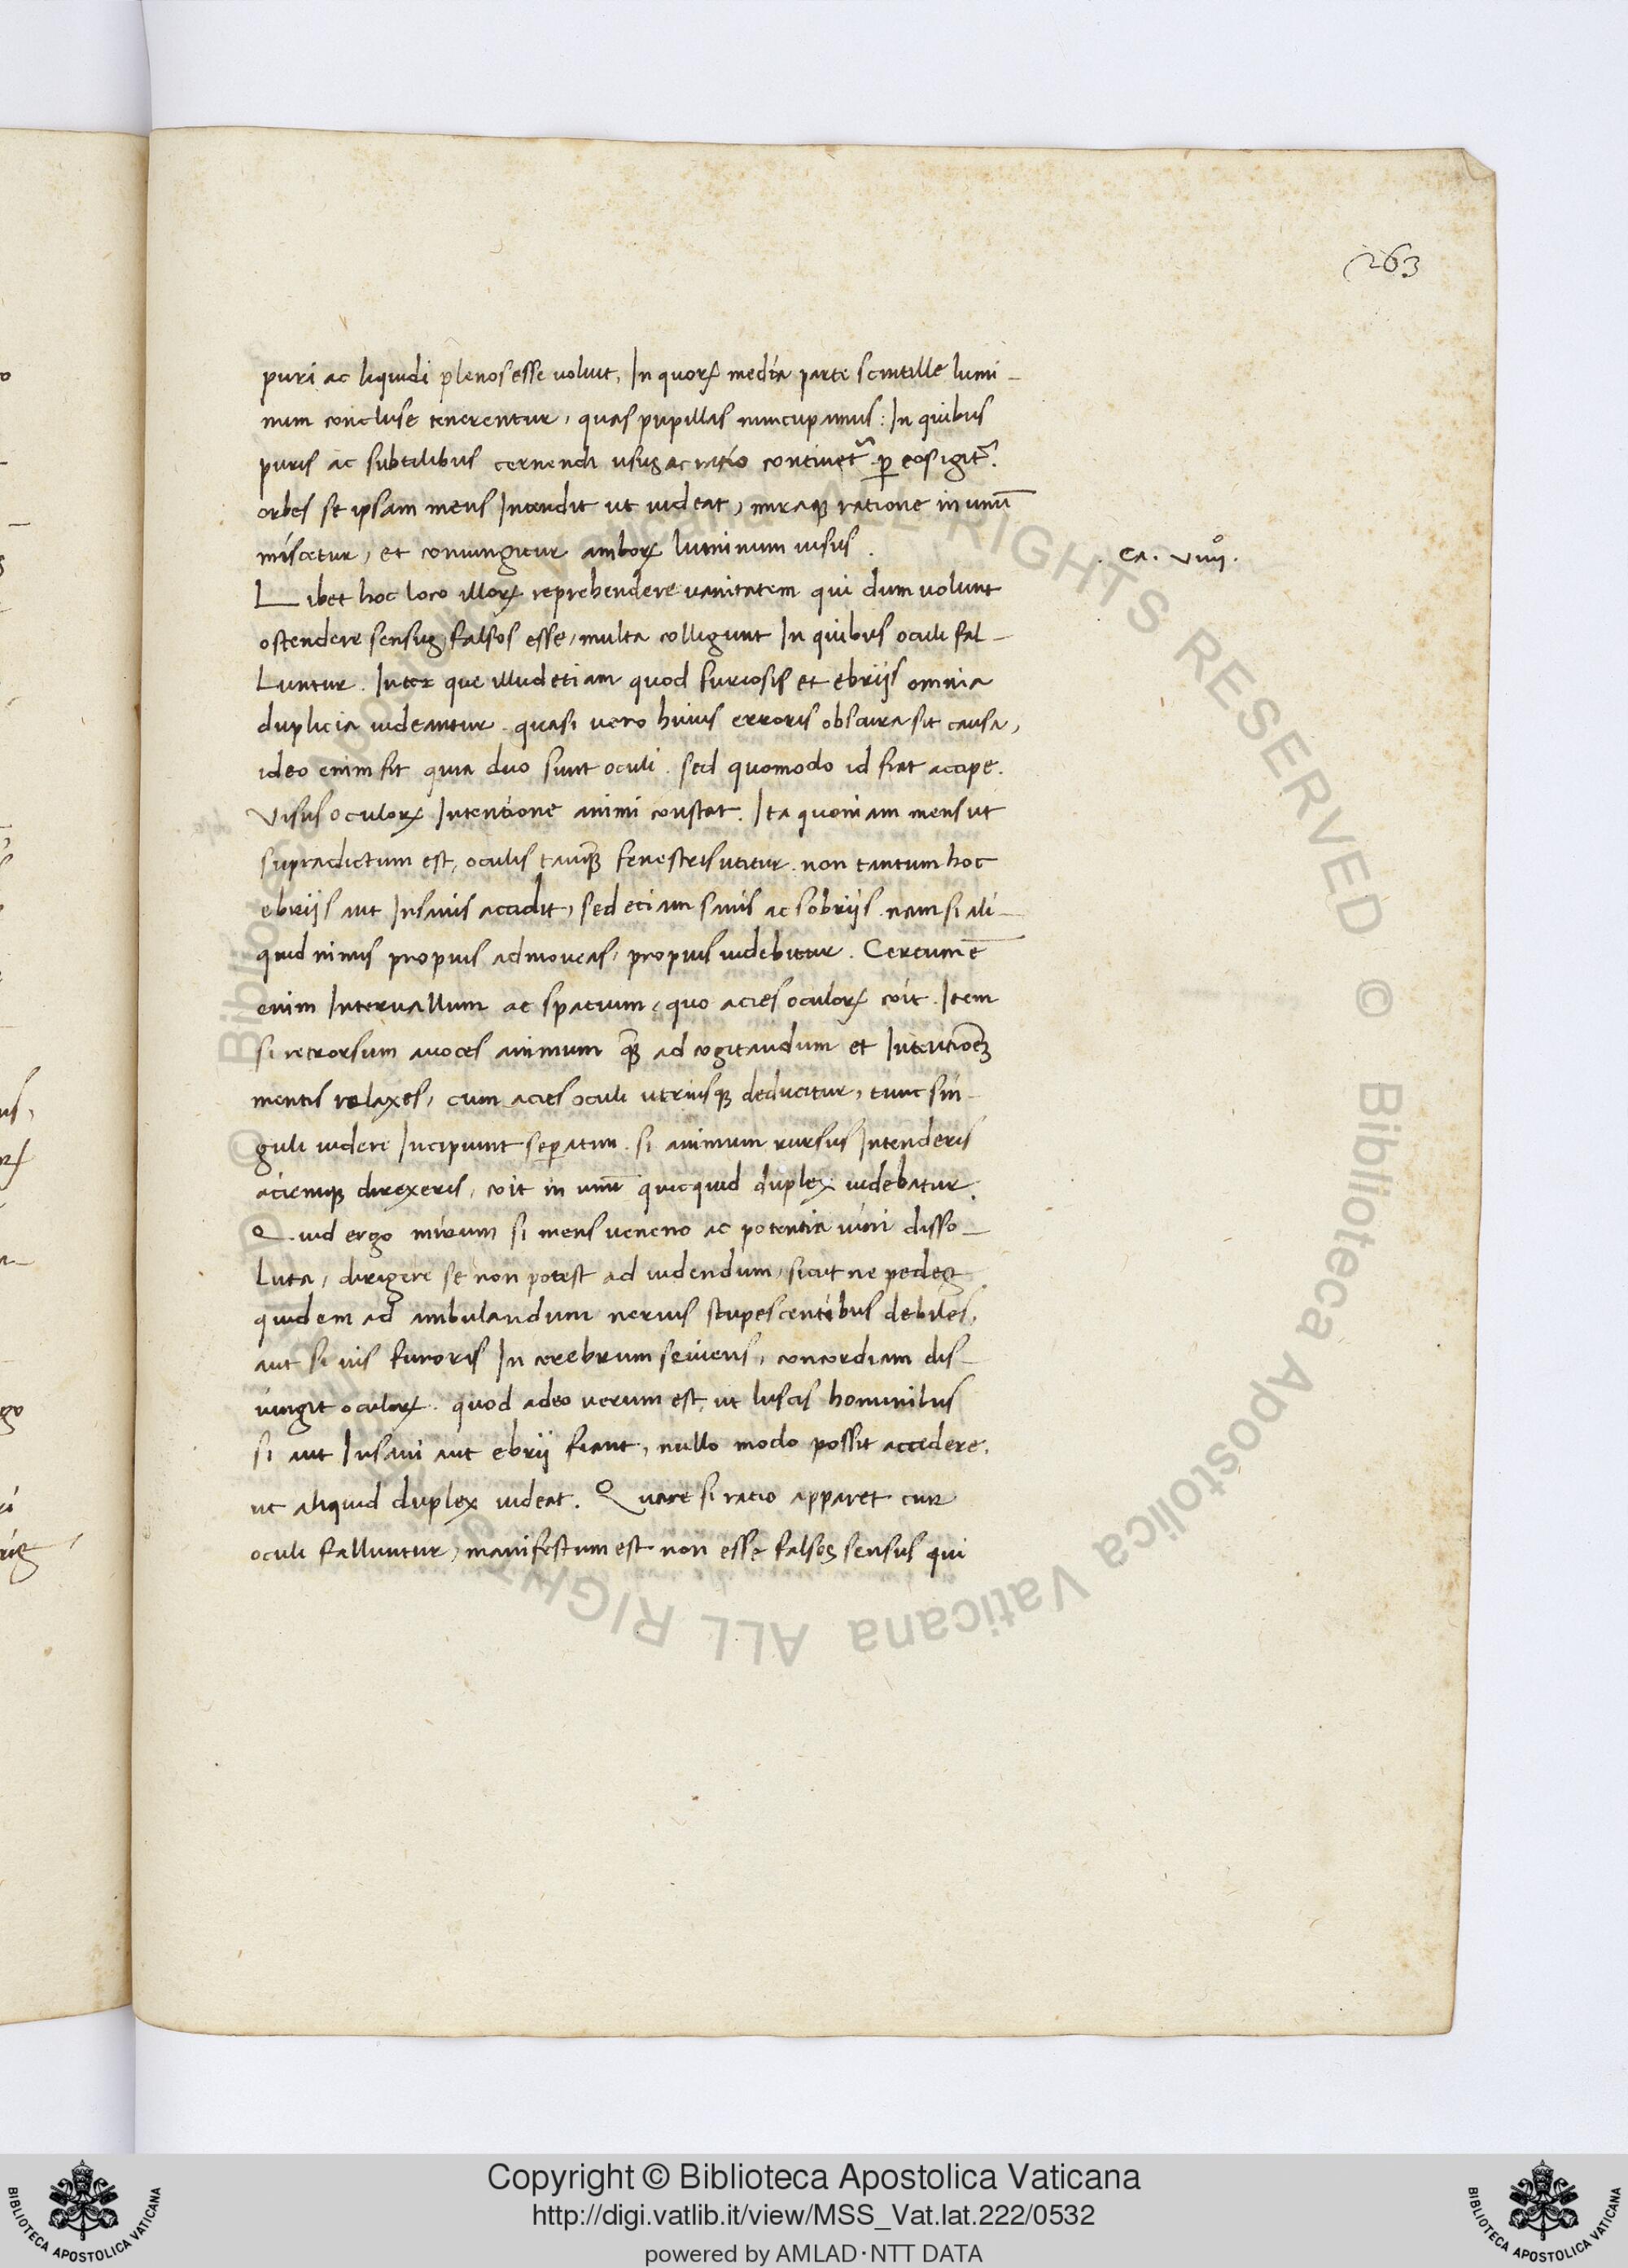 263
puri ac liquidi plenos esse voluit, In quoꝝ media parte scintille lumi-
num concluse tenerentur, quas pupillas nuncupamus: In quibus
puris ac subtilibus cernendi usus ac ratio continet᷑. ꝑ eos igit᷑.
orbes se ipsam mens Intendit ut uideat, miraqꝫ ratione in unū
miscetur, et coniungitur amboꝝ luminum uisus.
. Ca. VIIII°.
Libet hoc loco illoꝝ reprehendere uanitatem qui dum uolunt
ostendere sensus falsos esse, multa colligunt In quibus oculi fal-
luntur. Inter que illud etiam quod furiosis et ebrijs omnia
duplicia uideantur. quasi uero huius erroris obscura sit causa,
ideo enim fit quia duo sunt oculi. sed quomodo id fiat accipe.
Visus oculoꝝ Intentione animi constat. Ita quoniam mens ut
supradictum est, oculis tanqꝫ fenestris utitur. non tantum hoc
ebrijs aut Insanis accidit, sed etiam sanis ac sobrijs. nam si ali-
quid nimis propius admoueas, propius uidebitur. Certum ē
enim Interuallum ac spatium, quo acies oculoꝝ coit. Item
si retrorsum auoces animum qꝫ ad cogitandum et Intentionēꝫ
mentis relaxes, cum acies oculi utriusqꝫ deducitur, tunc sin-
guli uidere Incipiunt separatim. si animum rursus Intenderis
aciemqꝫ direxeris, coit in unū quicquid duplex uidebatur.
Quid ergo mirum si mens ueneno ac potentia uini disso-
luta, dirigere se non potest ad uidendum, sicut ne pedes
quidem ad ambulandum neruis stupescentibus debiles,
aut si uis furoris In cerebrum seuiens, concordiam dis-
iungit oculoꝝ. quod adeo uerum est, ut luscis hominibus
si aut Insani aut ebrij fiant, nullo modo possit accedere,
ut aliquid duplex uideat. Quare si ratio apparet cur
oculi falluntur, manifestum est non esse falsos sensus qui
© Biblioteca Apostolica Vaticana ALL RIGHTS RESERVED
Copyright © Biblioteca Apostolica Vaticana
http://digi.vatlib.it/view/MSS_Vat.lat.222/0532
powered by AMLAD·NTT DATA
BIBLIOTECA APOSTOLICA VATICANA
BIBLIOTECA APOSTOLICA VATICANA